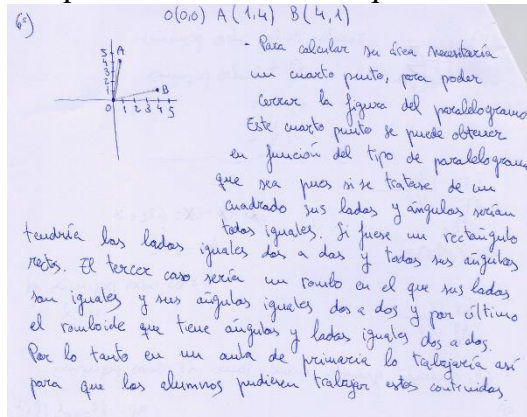 6º)
O(0,0) A(1,4) B(4,1)
5
4
3
2
1
A
B
0 1 2 3 4 5
- Para calcular su área necesitaría
un cuarto punto, para poder
cerrar la figura del paralelogramo
Este cuarto punto se puede obtener
en función del tipo de paralelogramo
que sea pues si se tratase de un
cuadrado sus lados y ángulos serían
todos iguales. Si fuese un rectángulo
tendría los lados iguales dos a dos y todos sus ángulos
rectos. El tercer caso sería un rombo en el que sus lados
son iguales y sus ángulos iguales dos a dos y por último
el romboide que tiene ángulos y lados iguales dos a dos.
Por lo tanto en un aula de primaria lo trabajaría así
para que los alumnos pudiesen trabajar estos contenidos